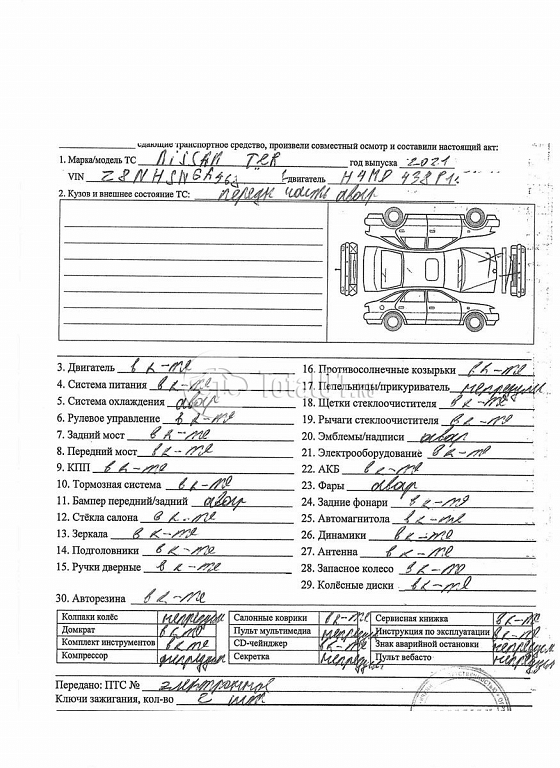 сдающие транспортное средство, произвели совместный осмотр и составили настоящий акт:
1. Марка/модель ТС NISSAN TER год выпуска 2021
VIN Z8NHSNGA двигатель H4MD 438P1
2. Кузов и внешнее состояние ТС: передн часть авар
3. Двигатель в к-те
4. Система питания в к-те
5. Система охлаждения авар
6. Рулевое управление в к-те
7. Задний мост в к-те
8. Передний мост в к-те
9. КПП в к-те
10. Тормозная система в к-те
11. Бампер передний/задний авар
12. Стёкла салона в к-те
13. Зеркала в к-те
14. Подголовники в к-те
15. Ручки дверные в к-те
16. Противосолнечные козырьки в к-те
17. Пепельницы/прикуриватель непредусм
18. Щетки стеклоочистителя в к-те
19. Рычаги стеклоочистителя в к-те
20. Эмблемы/надписи авар
21. Электрооборудование в к-те
22. АКБ в к-те
23. Фары авар
24. Задние фонари в к-те
25. Автомагнитола в к-те
26. Динамики в к-те
27. Антенна в к-те
28. Запасное колесо в к-те
29. Колёсные диски в к-те
30. Авторезина в к-те
Колпаки колёс непредусм Салонные коврики в к-те Сервисная книжка в к-те
Домкрат в к-те Пульт мультимедиа непредусм Инструкция по эксплуатации в к-те
Комплект инструментов в к-те CD-чейнджер в к-те Знак аварийной остановки непредусм
Компрессор непредусм Секретка непредусм Пульт вебасто непредусм
Передано: ПТС № электронной
Ключи зажигания, кол-во 2 шт